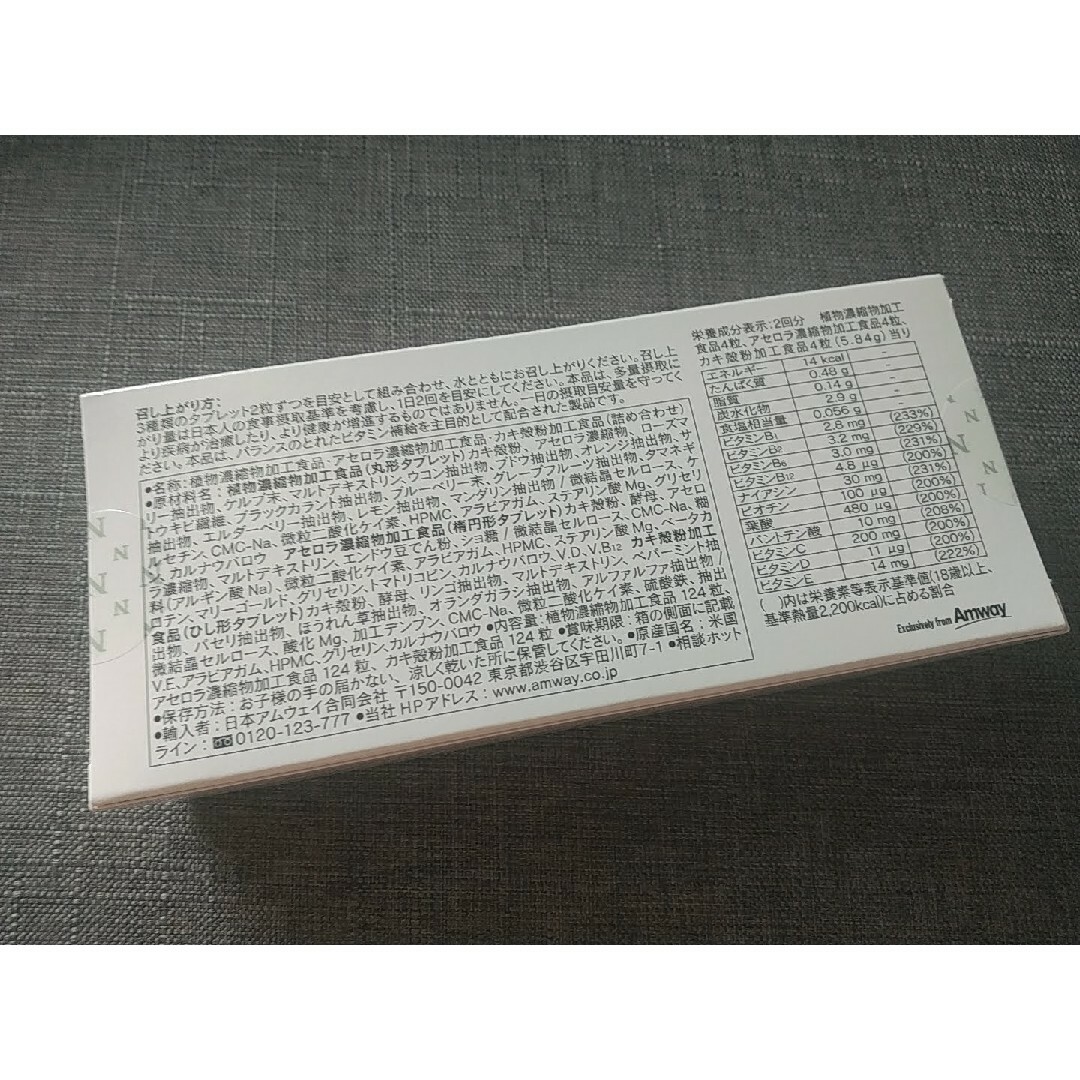 召し上がり方:
3種類のタブレット2粒ずつを目安として組み合わせ、水とともにお召し上がりください。召し上
がり量は日本人の食事摂取基準を考慮し、1日2回を目安にしてください。本品は、多量摂取に
より疾病が治癒したり、より健康が増進するものではありません。一日の摂取目安量を守ってく
ださい。本品は、バランスのとれたビタミン補給を主目的として配合された製品です。
●名称:植物濃縮物加工食品、アセロラ濃縮物加工食品、カキ殻粉加工食品(詰め合わせ)
●原材料名:植物濃縮物加工食品(丸形タブレット)カキ殻粉、アセロラ濃縮物、ローズマ
リー抽出物、ケルプ末、マルトデキストリン、ウコン抽出物、ブドウ抽出物、オレンジ抽出物、サ
トウキビ繊維、ブラックカラント抽出物、ブルーベリー末、グレープフルーツ抽出物、タマネギ
抽出物、エルダーベリー抽出物、レモン抽出物、マンダリン抽出物/微結晶セルロース、ケ
ルセチン、CMC-Na、微粒二酸化ケイ素、HPMC、アラビアガム、ステアリン酸Mg、グリセリ
ン、カルナウバロウ アセロラ濃縮物加工食品(楕円形タブレット)カキ殻粉、酵母、アセロ
ラ濃縮物、マルトデキストリン、エンドウ豆でん粉、ショ糖/微結晶セルロース、CMC-Na、糊
料(アルギン酸Na)、微粒二酸化ケイ素、アラビアガム、HPMC、ステアリン酸Mg、ベータカ
ロテン、マリーゴールド、グリセリン、トマトリコピン、カルナウバロウ、V.D、V.B12 カキ殻粉加工
食品(ひし形タブレット)カキ殻粉、酵母、リンゴ抽出物、マルトデキストリン、ペパーミント抽
出物、パセリ抽出物、ほうれん草抽出物、オランダガラシ抽出物、アルファルファ抽出物/
微結晶セルロース、酸化Mg、加工デンプン、CMC-Na、微粒二酸化ケイ素、硫酸鉄、抽出
V.E、アラビアガム、HPMC、グリセリン、カルナウバロウ ●内容量:植物濃縮物加工食品 124粒、
アセロラ濃縮物加工食品 124粒、カキ殻粉加工食品 124粒 ●賞味期限:箱の側面に記載
●保存方法:お子様の手の届かない、涼しく乾いた所に保管してください。●原産国名:米国
●輸入者:日本アムウェイ合同会社 〒150-0042 東京都渋谷区宇田川町7-1 ●相談ホット
ライン:0120-123-777 ●当社HPアドレス:www.amway.co.jp
栄養成分表示:2回分 植物濃縮物加工
食品4粒、アセロラ濃縮物加工食品4粒、
カキ殻粉加工食品4粒(5.84g)当り
エネルギー 14 kcal -
たんぱく質 0.48 g -
脂質 0.14 g -
炭水化物 2.9 g -
食塩相当量 0.056 g -
ビタミンB1 2.8 mg (233%)
ビタミンB2 3.2 mg (229%)
ビタミンB6 3.0 mg (231%)
ビタミンB12 4.8 μg (200%)
ナイアシン 30 mg (231%)
ビオチン 100 μg (200%)
葉酸 480 μg (200%)
パントテン酸 10 mg (208%)
ビタミンC 200 mg (200%)
ビタミンD 11 μg (200%)
ビタミンE 14 mg (222%)
( )内は栄養素等表示基準値(18歳以上、
基準熱量2,200kcal)に占める割合
Exclusively from Amway
N
N
N
N
N
N
N
N